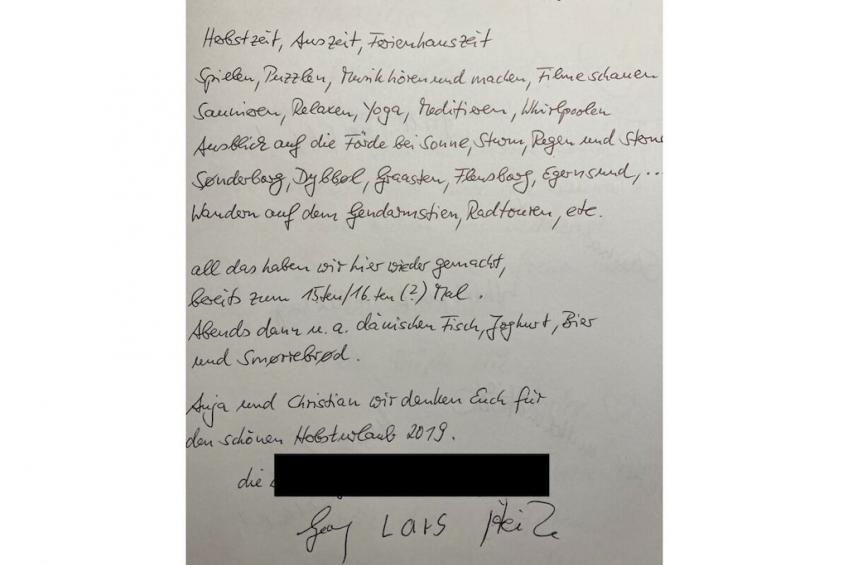 Herbstzeit, Auszeit, Ferienhauszeit
Spielen, Puzzlen, Musik hören und machen, Filme schauen
Saunieren, Relaxen, Yoga, Meditieren, Whirlpoolen
Ausblick auf die Förde bei Sonne, Sturm, Regen und Sterne
Sønderborg, Dybbøl, Graasten, Flensburg, Egernsund, ...
Wandern auf dem Gendarmstien, Radtouren, etc.
all das haben wir hier wieder gemacht,
bereits zum 15ten/16.ten (?) Mal.
Abends dann u. a. dänischen Fisch, Joghurt, Bier
und Smørrebrød.
Anja und Christian wir danken Euch für
den schönen Herbsturlaub 2019.
die
Lars